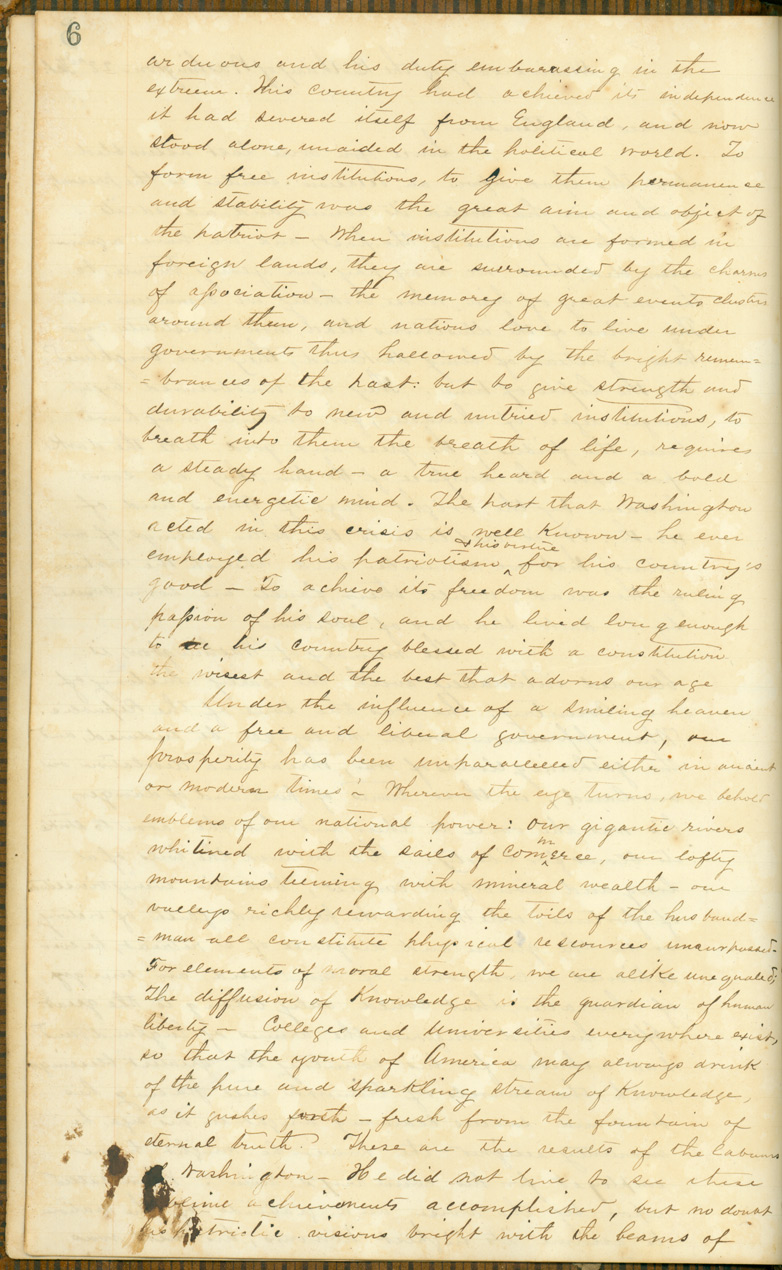 6
arduous and his duty embarassing in the
extreem. His country had achieved its independence
it had severed itself from England, and now
stood alone, unaided in the political world. To
form free institutions, to give them permanence
and stability was the great aim and object of
the patriot – When institutions are formed in
foreign lands, they are surrounded by the charms
of association – the memory of great events clusters
around them, and nations love to live under
governments thus hallowed by the bright remem=
=brances of the past: but to give strength and
durability to new and untried institutions, to
breath into them the breath of life, requires
a steady hand – a true heard and a bold
and energetic mind. The part that Washington
acted in this crisis is well known – he ever
& his virtue
employed his patriotism ^ for his country's
good – To achieve its freedom was the ruling
passion of his soul, and he lived long enough
to see his country blessed with a constitution
the wisest and the best that adorns our age
Under the influence of a smiling heaven
and a free and liberal government, our
prosperity has been unparalleled either in ancient
or modern times – Wherever the eye turns, we behold
emblems of our national power: our gigantic rivers
whitined with the sails of commerce, our lofty
mountains teeming with mineral wealth – our
valleys richly rewarding the toils of the husband=
=man all constitute physical rescources unsurpassed.
For elements of moral strength, we are alike unequaled;
The diffusion of Knowledge is the guardian of human
liberty – Colleges and Universities everywhere exist,
so that the youth of America may always drink
of the pure and sparkling stream of Knowledge,
as it gushes forth – fresh from the fountain of
eternal truth. These are the results of the labours
Washington – He did not live to see these
achievements accomplished, but no doubt
his patriotic visions bright with the beams of